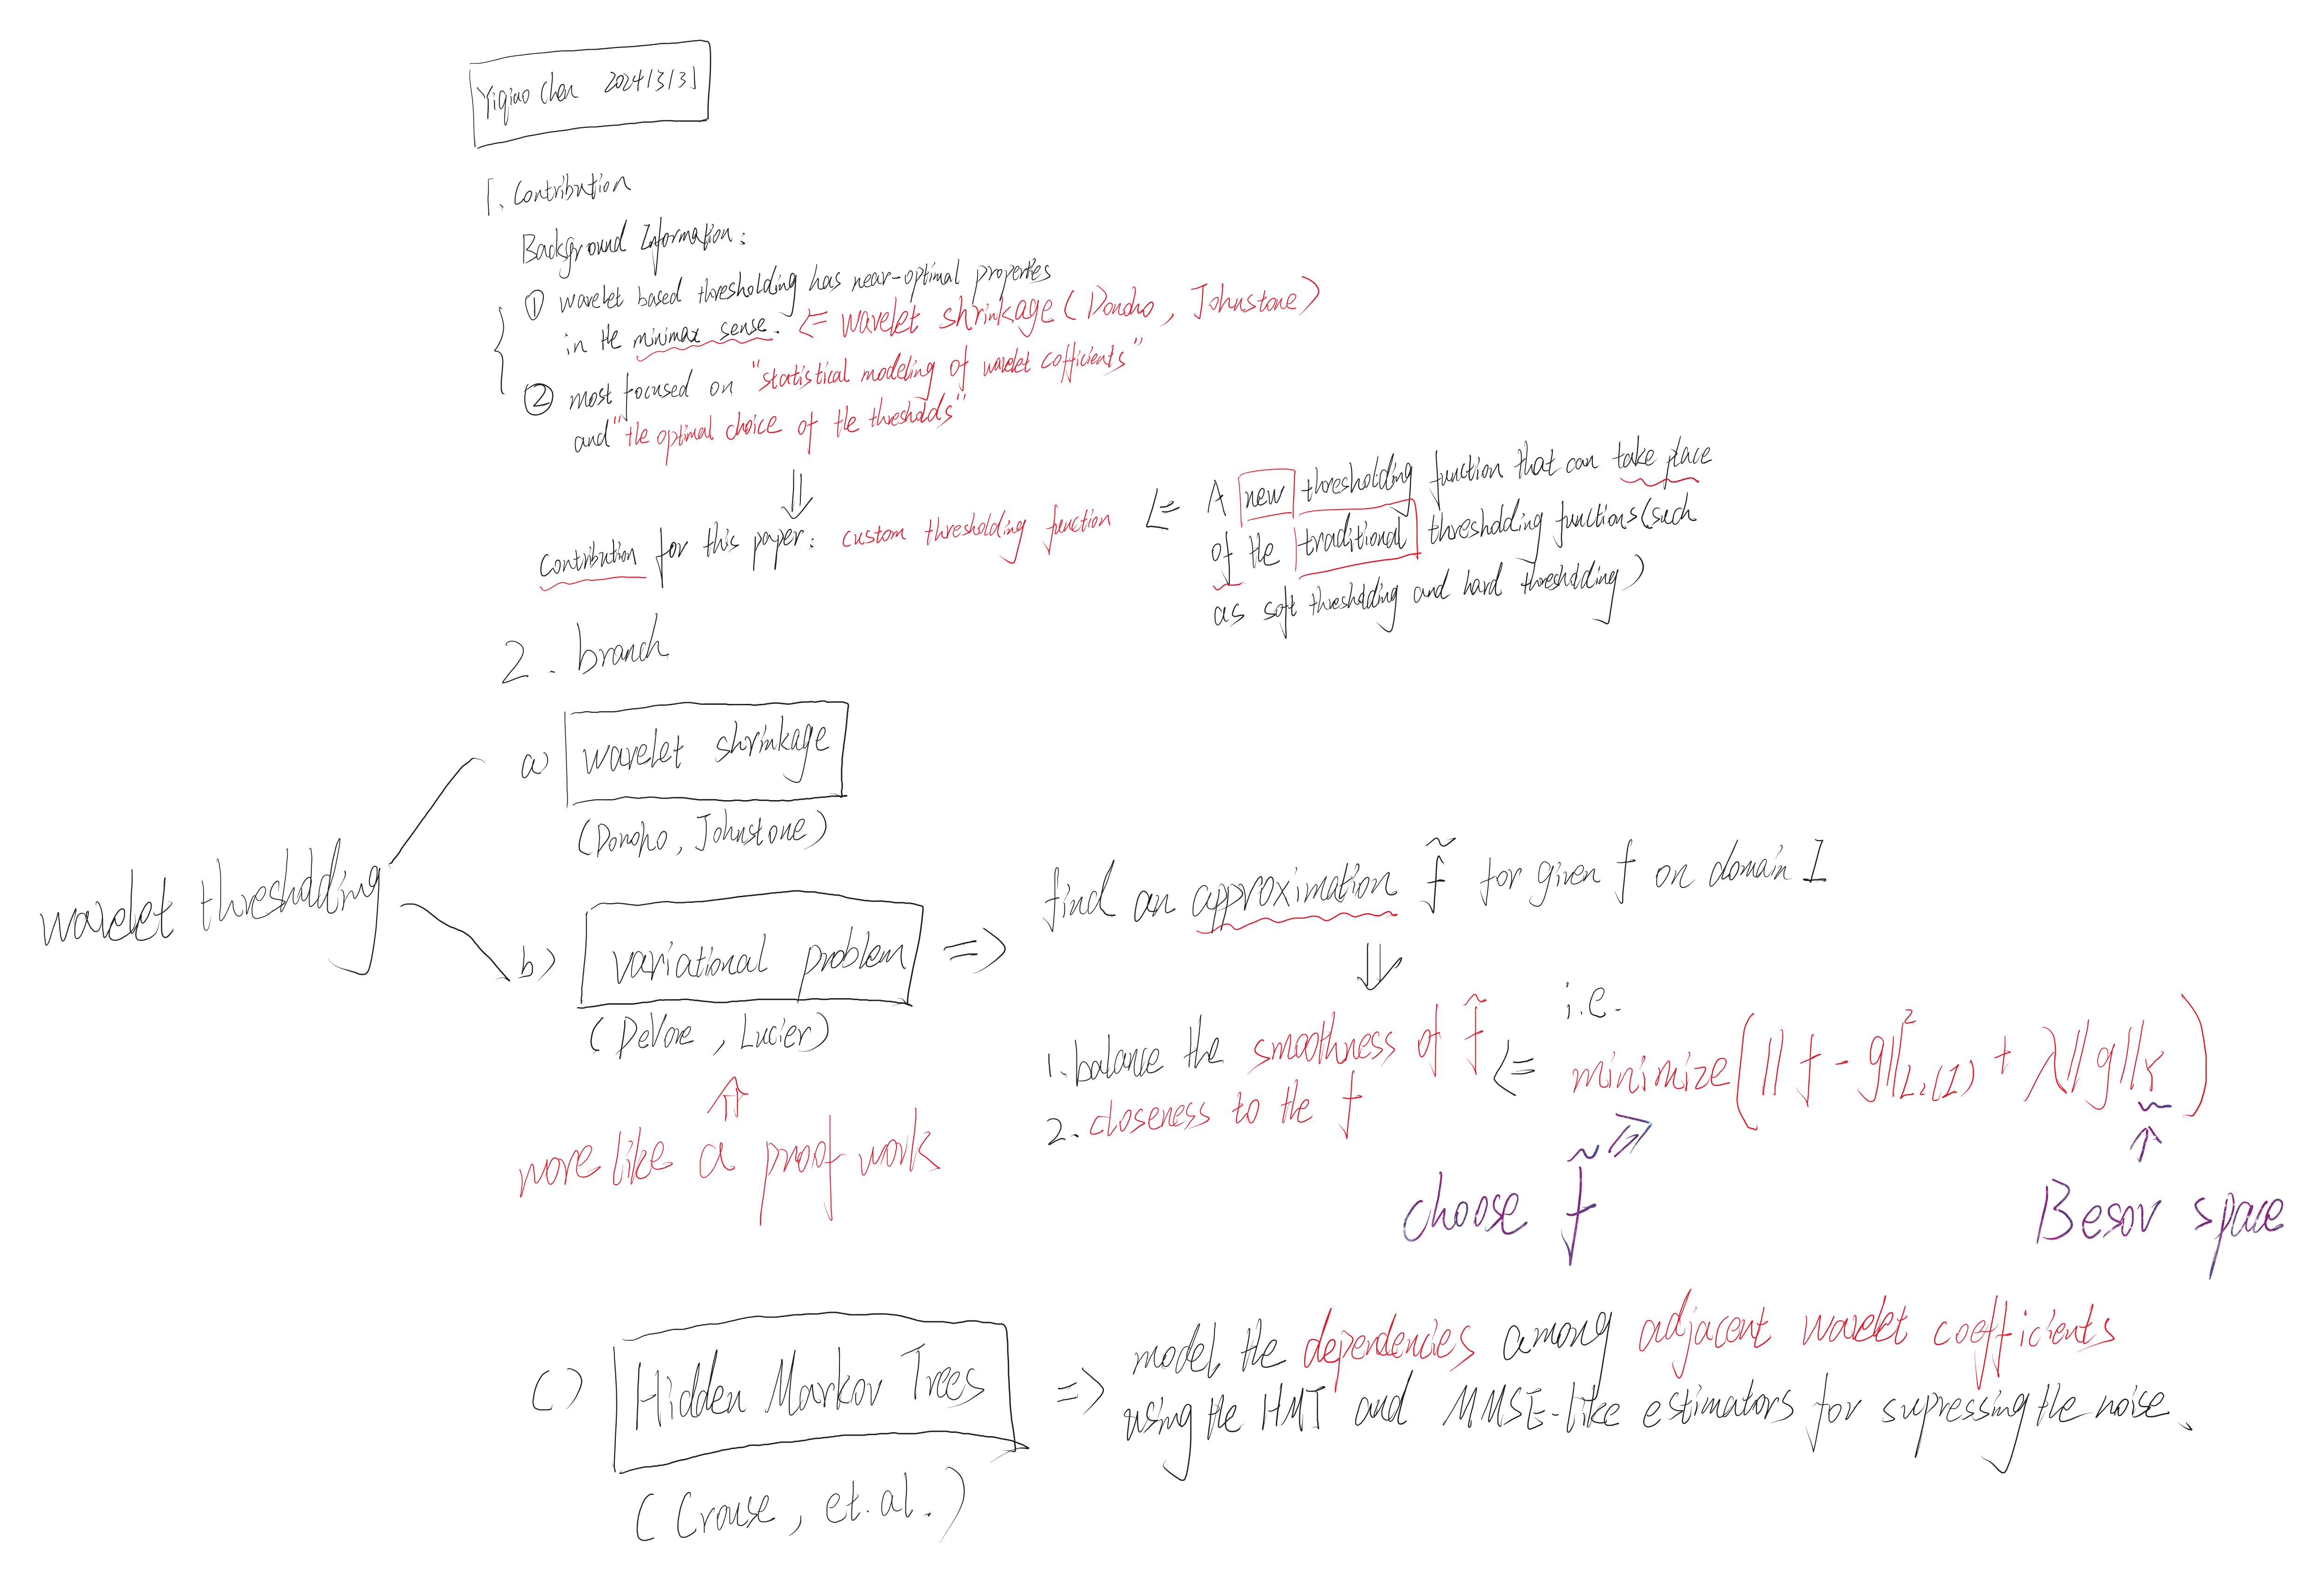 Yiqiao Chen 2024/3/31
1. Contribution
Background Information:
① wavelet based thresholding has near-optimal properties
in the minimax sense. <= wavelet shrinkage (Donoho, Johnstone)
② most focused on "statistical modeling of wavelet cofficients"
and "the optimal choice of the thresholds"
⇓
Contribution for this paper: custom thresholding function <= A new thresholding function that can take place
of the traditional thresholding functions (such
as soft thresholding and hard thresholding)
2. branch
wavelet thresholding
a) wavelet shrinkage
(Donoho, Johnstone)
b) variational problem => find an approximation f̃ for given f on domain I
(DeVore, Lucier)
⇑
more like a proof work
⇓
1. balance the smoothness of f̃
2. closeness to the f
<= i.e.
minimize(||f - g||²_{L₂(I)} + λ||g||_Y)
choose f̃ =>
↑
Besov space
c) Hidden Markov Trees => model the dependencies among adjacent wavelet coefficients
using the HMT and MMSE-like estimators for supressing the noise.
(Crouse, et.al.)